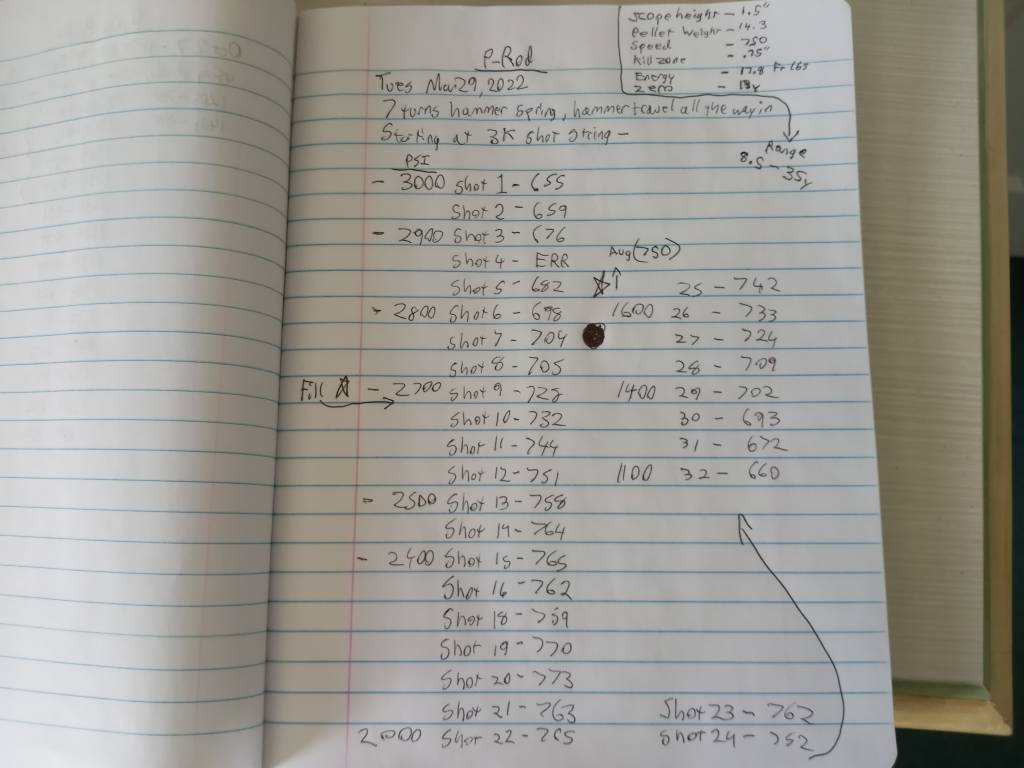 P-Rod
Tues Mar 29, 2022
Scope height - 1.5"
Pellet Weight - 14.3
Speed - 750
Kill zone - .75"
Energy - 17.8 Ft lbs
Zero - 13y
Range
8.5 - 35y
7 turns hammer spring, hammer travel all the way in
Starting at 3K shot string -
PSI
- 3000 Shot 1 - 655
Shot 2 - 659
- 2900 Shot 3 - 676
Shot 4 - ERR
Shot 5 - 682
- 2800 Shot 6 - 698
Shot 7 - 704
Shot 8 - 705
Fill ☆ - 2700 Shot 9 - 728
Shot 10 - 732
Shot 11 - 744
Shot 12 - 751
- 2500 Shot 13 - 758
Shot 14 - 764
- 2400 Shot 15 - 765
Shot 16 - 762
Shot 18 - 759
Shot 19 - 770
Shot 20 - 773
Shot 21 - 763
2000 Shot 22 - 765
Shot 23 - 762
Shot 24 - 752
Avg (750)
☆ 25 - 742
1600 26 - 733
27 - 724
28 - 709
1400 29 - 702
30 - 693
31 - 672
1100 32 - 660